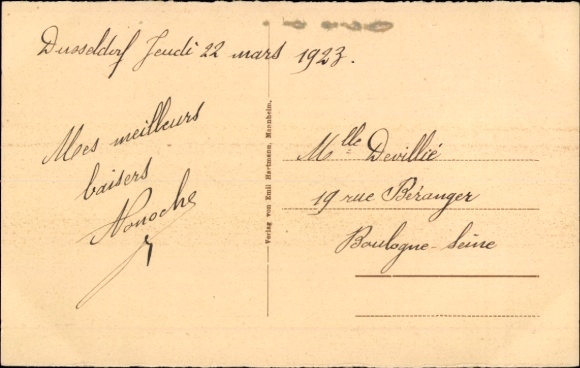 Dusseldorf Jeudi 22 mars 1923.
Mes meilleurs
baisers
Nonoche
Verlag von Emil Hartmann, Mannheim.
Mlle Devillié
19 rue Béranger
Boulogne-Seine